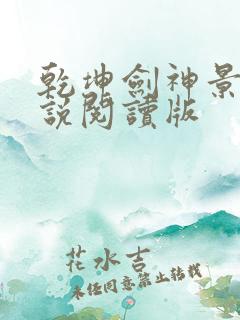 乾坤劍神景
説閱讀版
花水吉
未經同意禁止轉載